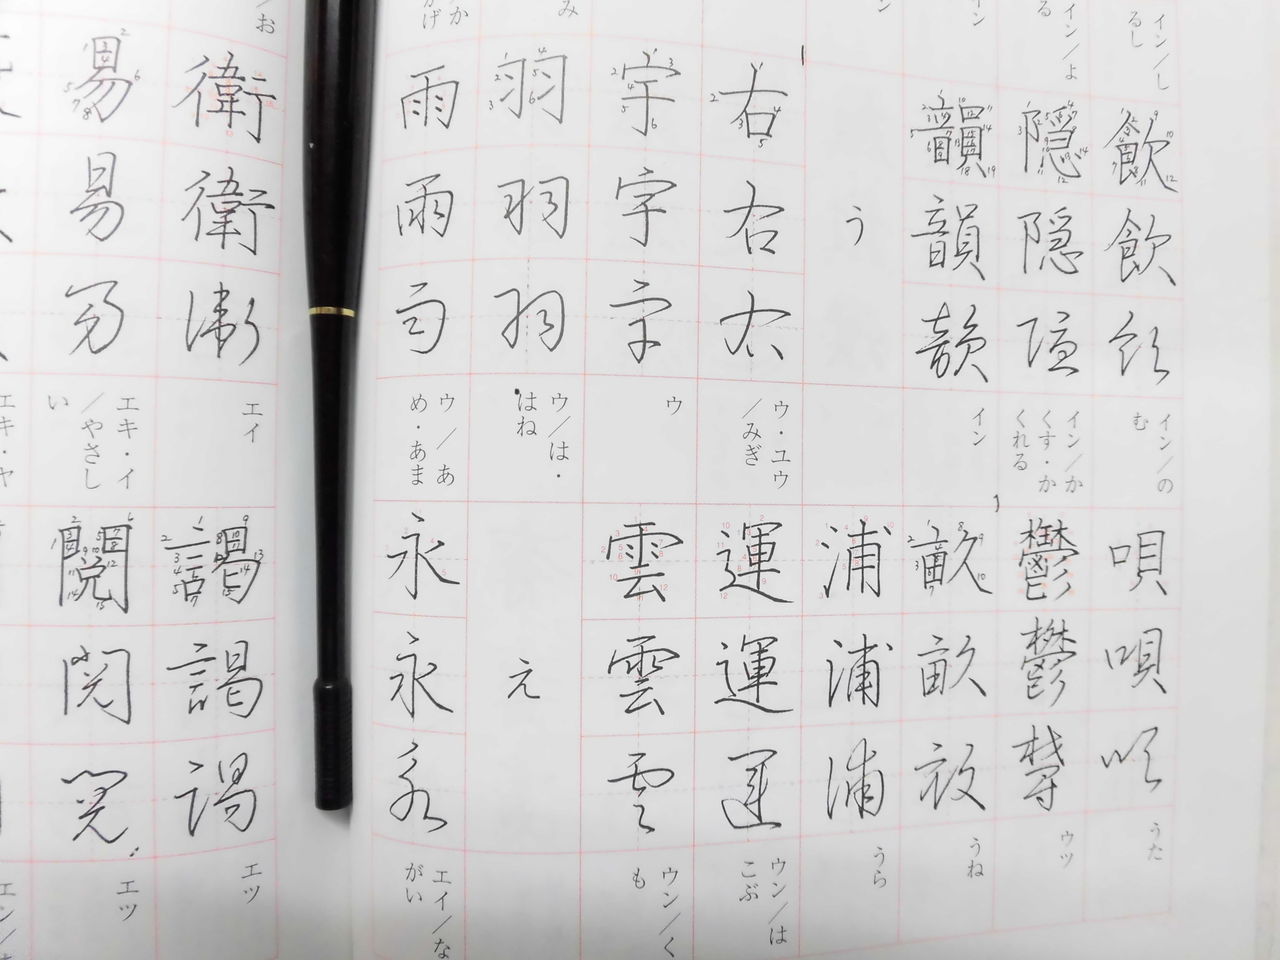 イン/し
るし
イン/よ
る
イン
ン
み
か
かげ
飲 飲 飲
イン/の
む
隠 隠 隠
イン/か
くす・か
くれる
韻 韻 韻
イン
う
右 右 右
ウ・ユウ
/みぎ
宇 宇 宇
ウ
羽 羽 羽
ウ/は・
はね
雨 雨 雨
ウ/あ
め・あま
唄 唄 唄
うた
鬱 鬱 鬱
ウツ
畝 畝 畝
うね
浦 浦 浦
うら
運 運 運
ウン/は
こぶ
雲 雲 雲
ウン/く
も
え
永 永 永
エイ/な
がい
/お
衛 衛 衛
エイ
易 易 易
エキ・イ
/やさし
い
エキ・ヤ
謁 謁 謁
エツ
閲 閲 閲
エツ
エン/